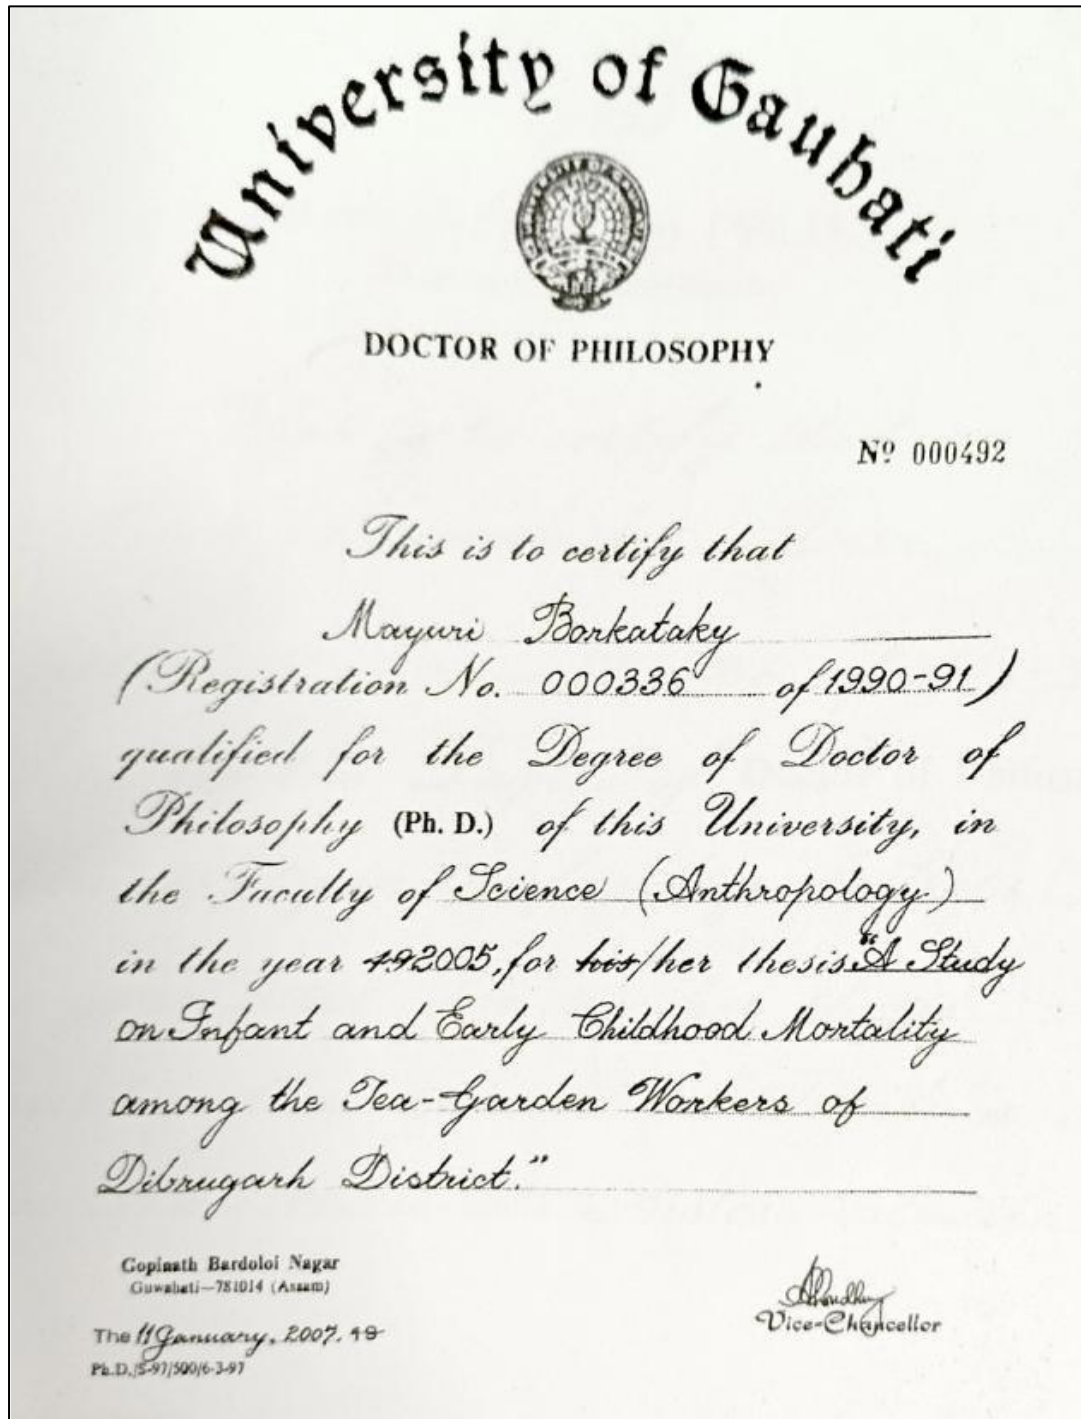 University of Gauhati
DOCTOR OF PHILOSOPHY
Nº 000492
This is to certify that
Mayuri Borkataky
(Registration No. 000336 of 1990-91)
qualified for the Degree of Doctor of
Philosophy (Ph. D.) of this University, in
the Faculty of Science (Anthropology)
in the year 192005, for his/her thesis "A Study
on Infant and Early Childhood Mortality
among the Tea-Garden Workers of
Dibrugarh District."
Gopinath Bardoloi Nagar
Guwahati—781014 (Assam)
The 11 January, 2007. 19
Ph.D./S-97/500/6-3-97
Vice-Chancellor